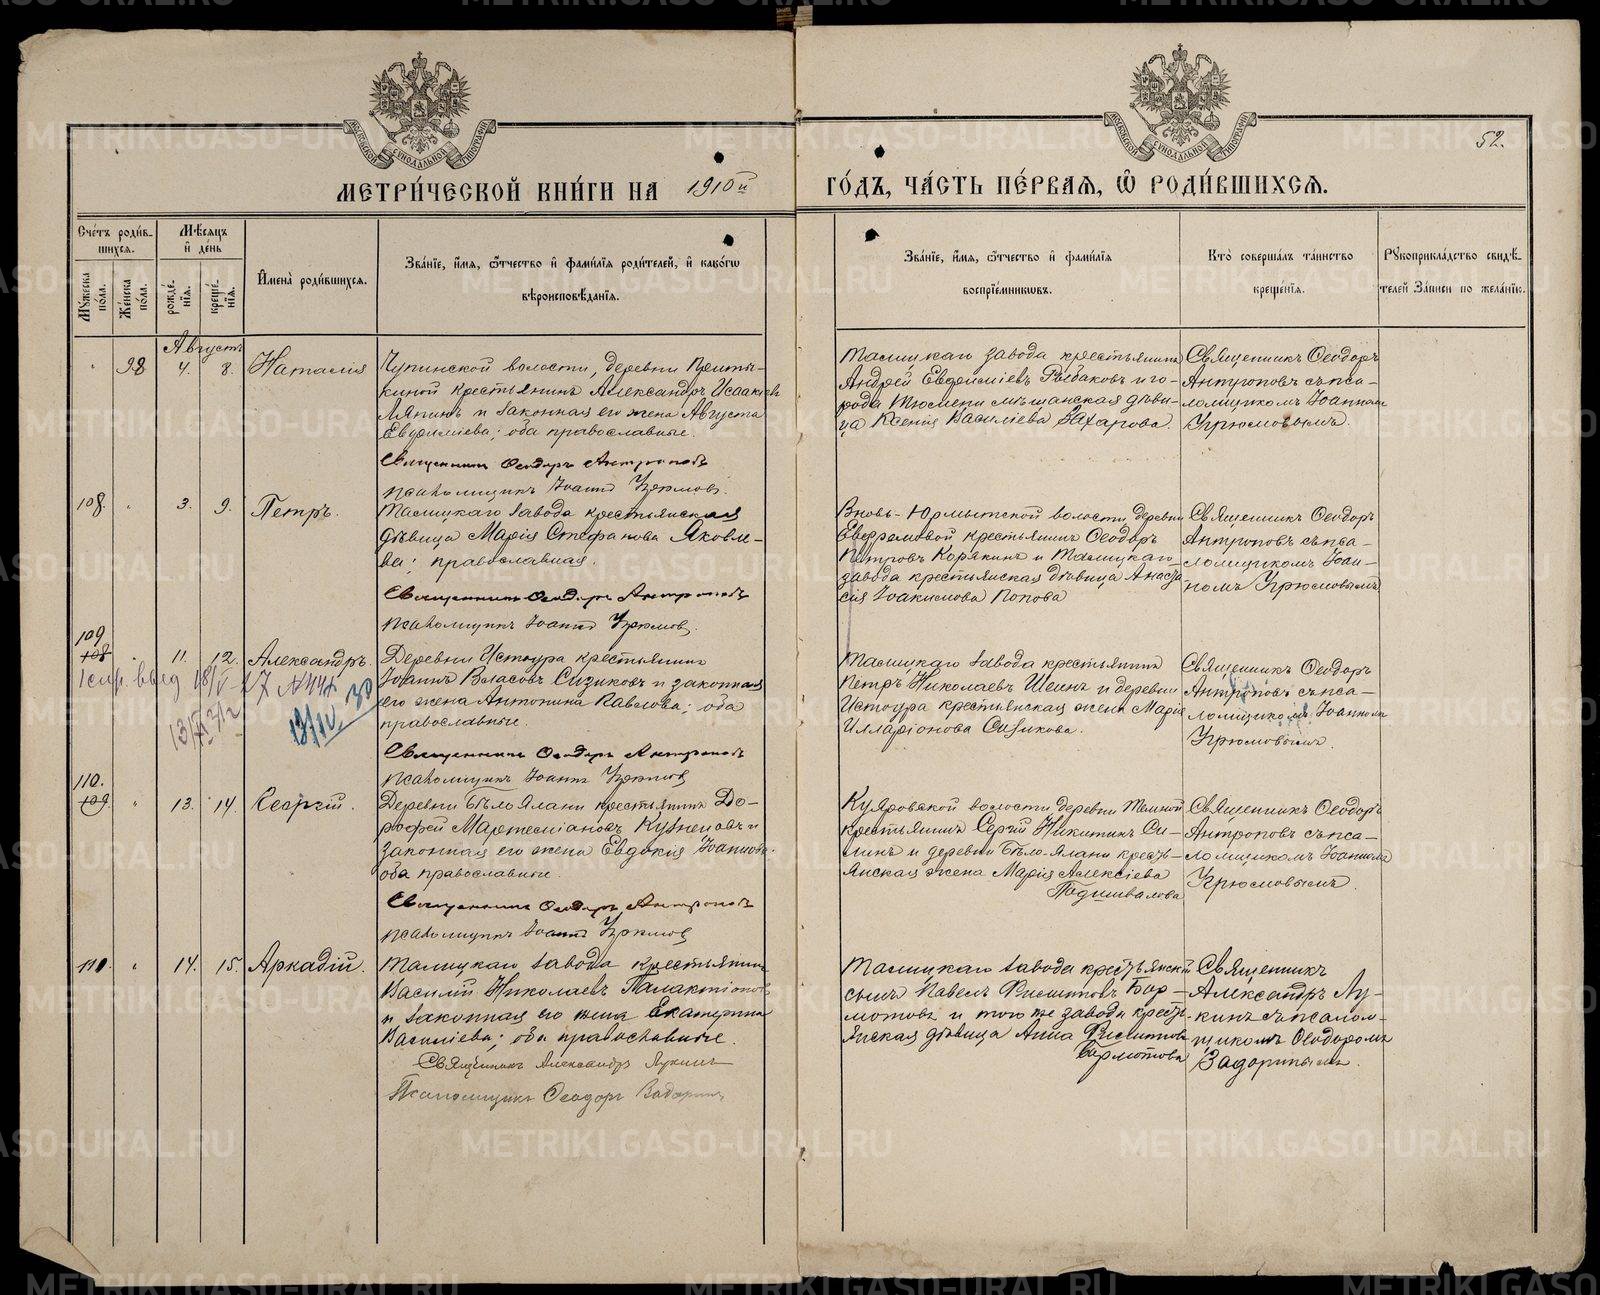 52.
МЕТРИ́ЧЕСКОЙ КНИ́ГИ НА 1910й ГО́ДЪ, ЧА́СТЬ ПЕ́РВАЯ, Ѡ РОДИ́ВШИХСЯ.
Сче́тъ роди́вшихся.
Му́жеска по́ла.
Же́нска по́ла.
Мѣ́сяцъ и де́нь
рожде́нія.
креще́нія.
Имена̀ роди́вшихся.
Зва́ніе, и́мя, ѻ҆́тчество и фами́лія роди́телей, и како́гѡ
вѣроисповѣ́данія.
Зва́ніе, и́мя, ѻ҆́тчество и фами́лія
воспріе́мниковъ.
Кто̀ соверша́лъ та́инство
креще́нія.
Рукоприкла́дство свидѣ́-
телей за́писи по жела́нію.
Августъ
98 4. 8. Наталія
Чупинской волости, деревни
киной крестьянинъ Александръ Исаакіевъ
Ляпинъ и законная его жена Августа
Евѳиміева; оба православные.
Священникъ Ѳеодоръ Антроповъ
Псаломщикъ Іоаннъ Угрюмовъ.
Талицкаго завода крестьянинъ
Андрей Евѳиміевъ Рыбаковъ и го-
рода Тюмени мѣщанская дѣви-
ца Ксенія Василіева Захарова.
Священникъ Ѳеодоръ
Антроповъ съ пса-
ломщикомъ Іоанномъ
Угрюмовымъ.
108. 3. 9. Петръ.
Талицкаго завода крестьянская
дѣвица Марія Стефанова Яковле-
ва; православная.
Священникъ Ѳеодоръ Антроповъ
Псаломщикъ Іоаннъ Угрюмовъ.
Вновь-Юрмытской волости деревни
Евфремовой крестьянинъ Ѳеодоръ
Петровъ Корякинъ и Талицкаго
завода крестьянская дѣвица Анаста-
сія Іоакимова Попова
Священникъ Ѳеодоръ
Антроповъ съ пса-
ломщикомъ Іоан-
номъ Угрюмовымъ
109
108 11. 12. Александръ.
Деревни Истоура крестьянинъ
Іоаннъ Власовъ Сизиковъ и законная
его жена Антонина Павлова; оба
православные.
Священникъ Ѳеодоръ Антроповъ
Псаломщикъ Іоаннъ Угрюмовъ
Талицкаго завода крестьянинъ
Петръ Николаевъ Шеинъ и деревни
Истоура крестьянская жена Марія
Илларіонова Сизикова.
Священникъ Ѳеодоръ
Антроповъ съ пса-
ломщикомъ Іоанномъ
Угрюмовымъ.
110.
109. 13. 14. Георгій.
Деревни Бѣло-Ялани крестьянинъ До-
рофей Мартеміановъ Кузнецовъ и
законная его жена Евдокія Іоаннова
оба православные.
Священникъ Ѳеодоръ Антроповъ
Псаломщикъ Іоаннъ Угрюмовъ
Куяровской волости деревни Темной
крестьянинъ Сергій Никитинъ Си-
линъ и деревни Бѣло-Ялани кресть-
янская жена Марія Алексіева
Подшивалова
Священникъ Ѳеодоръ
Антроповъ съ пса-
ломщикомъ Іоанномъ
Угрюмовымъ.
110. 14. 15. Аркадій.
Талицкаго завода крестьянинъ
Василій Николаевъ Галактіоновъ
и законная его жена Екатерина
Василіева; оба православные.
Священникъ Александръ Лукинъ
Псаломщикъ Ѳеодоръ Задоринъ
Талицкаго завода крестьянскій
сынъ Павелъ Филитовъ Бар-
мотовъ и того же завода кресть-
янская дѣвица Анна
Бармотова
Священникъ
Александръ Лу-
кинъ съ псалом-
щикомъ Ѳеодоромъ
Задоринымъ.
METRIKI.GASO-URAL.RU